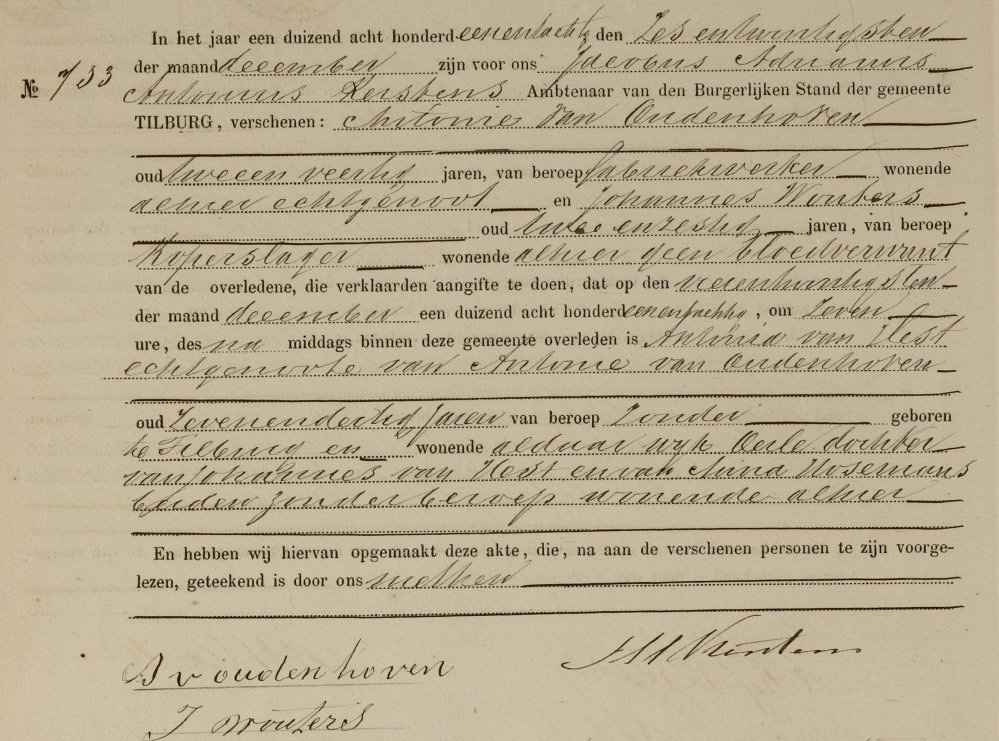 In het jaar een duizend acht honderd eenentachtig den Zes en twintigsten
der maand december zijn voor ons Jacobus Adrianus
№ 733
Antonius Kerstens Ambtenaar van den Burgerlijken Stand der gemeente
TILBURG, verschenen: Antonie van Oudenhoven
oud tweeen veertig jaren, van beroep fabriekwerker wonende
alhier echtgenoot en Johannes Wouters
oud twee enzestig jaren, van beroep
Koperslager wonende alhier geen bloedverwant
van de overledene, die verklaarden aangifte te doen, dat op den
der maand december een duizend acht honderd eenentachtig, om zeven
ure, des na middags binnen deze gemeente overleden is Antonia van Hest
echtgenoote van Antonie van Oudenhoven
oud Zevenendertig jaren van beroep Zonder geboren
te Tilburg en wonende aldaar wijk Oerle dochter
van Johannes van Hest en van Anna Hosemans
beiden zonder beroep wonende alhier
En hebben wij hiervan opgemaakt deze akte, die, na aan de verschenen personen te zijn voorge-
lezen, geteekend is door ons met hen
A v oudenhoven
J Wouters